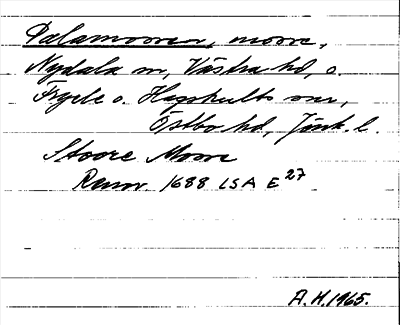 Dalamossen, mosse,
Nydala sn, Västra hd, o.
Fryele o. Hagshults snr,
Östbo hd, Jönk. l.
Stoore Mosse
Renov. 1688 LSA E27
A.H.1965.